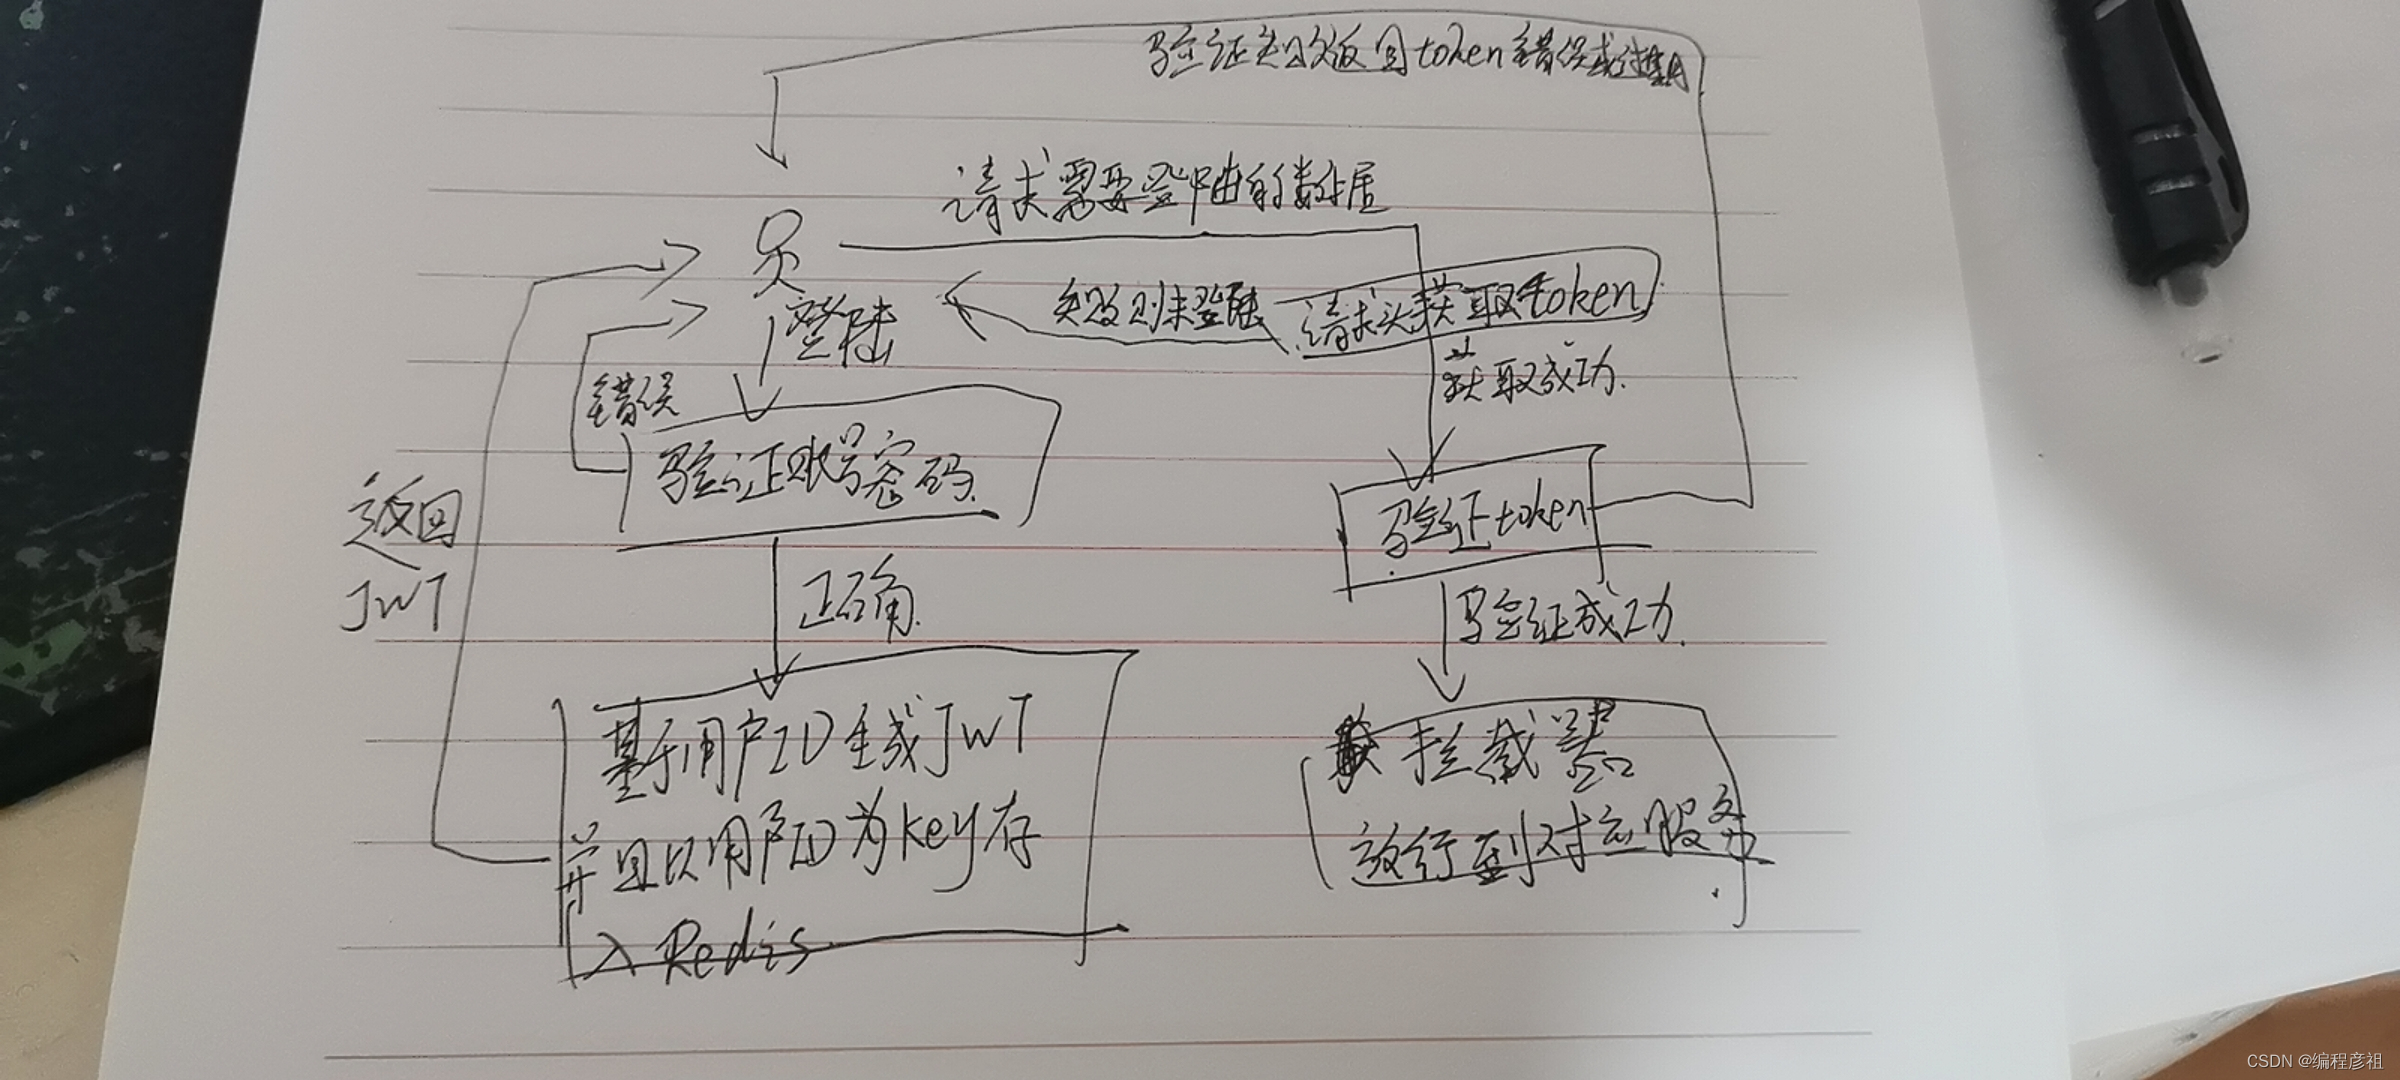 验证失败返回token错误或过期
请求需要登陆的数据
失败则未登陆
请求头获取token
登陆
获取成功.
错误
验证账号密码.
验证token
返回
JWT
正确.
验证成功.
基于用户ID生成JWT
并且以用户ID为key存
入Redis.
拦截器
放行到对应服务.
CSDN @编程彦祖